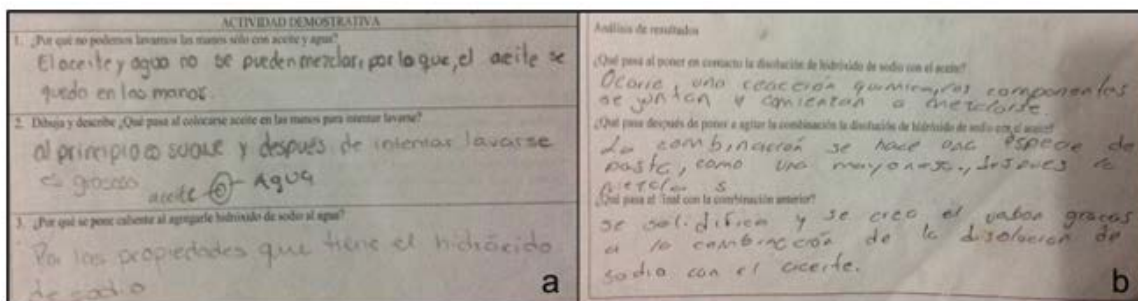 ACTIVIDAD DEMOSTRATIVA
1. ¿Por qué no podemos lavarnos las manos sólo con aceite y agua?
El aceite y agua no se pueden mezclar, por lo que, el aceite se
queda en las manos.
2. Dibuja y describe ¿Qué pasa al colocarse aceite en las manos para intentar lavarse?
al principio es suave y después de intentar lavarse
es grasoso
aceite Agua
3. ¿Por qué se pone caliente al agregarle hidróxido de sodio al agua?
Por las propiedades que tiene el hidróxido
de sodio
a
Análisis de resultados
¿Qué pasa al poner en contacto la disolución de hidróxido de sodio con el aceite?
Ocurre una reacción química, los componentes
se juntan y comienzan a mezclarse.
¿Qué pasa después de poner a agitar la combinación la disolución de hidróxido de sodio con el aceite?
La combinación se hace una especie de
pasta, como una mayonesa, después de
¿Qué pasa al final con la combinación anterior?
se solidifica y se crea el jabón gracias
a la combinación de la disolución de
sodio con el aceite.
b